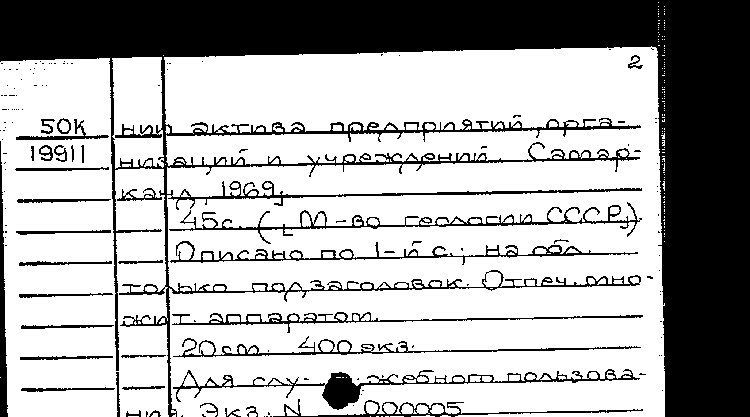 2
50К нии актива предприятий, орга-
19911 низаций и учреждений. Самар-
канд, 1969.
45с. ([М-во геологии СССР])
Описано по 1-й с.; на обл.
только подзаголовок. Отпеч. мно-
жит. аппаратом.
20cm. 400 экз.
Для служебного пользова-
ния. Экз. N 000005